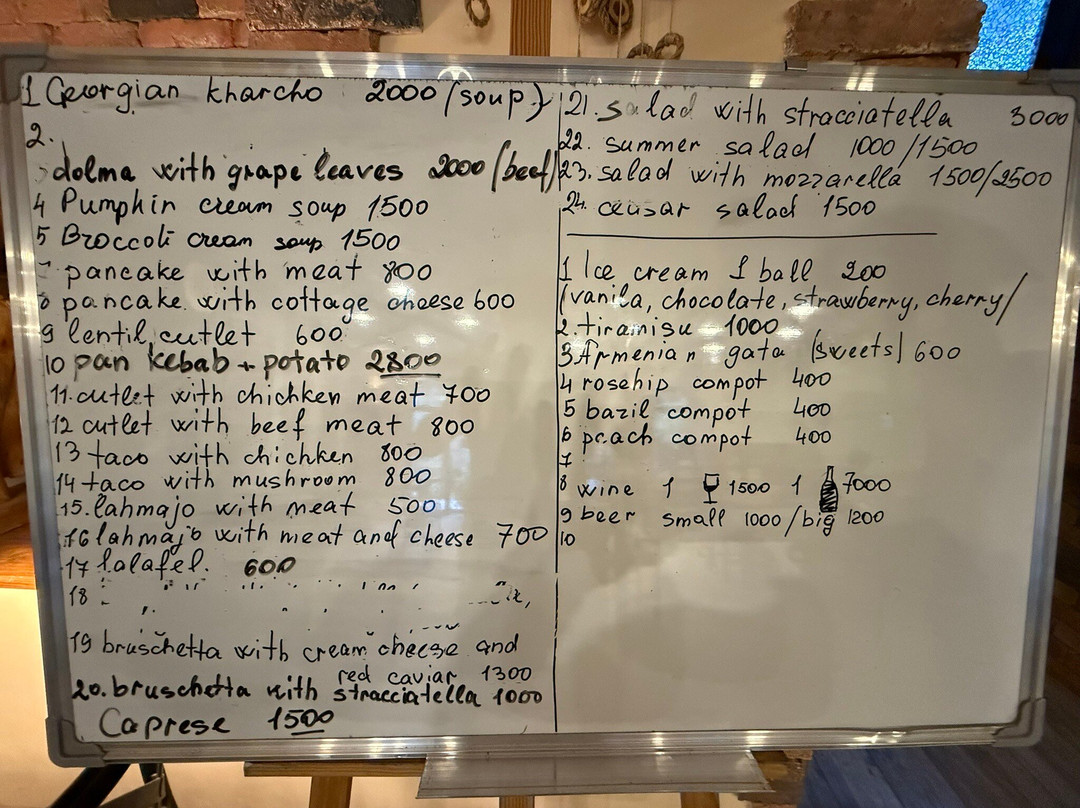 1 Georgian kharcho 2000 (soup)
2.
dolma with grape leaves 2000 (beef)
4 Pumpkin cream soup 1500
5 Broccoli cream soup 1500
pancake with meat 800
8 pancake with cottage cheese 600
9 lentil cutlet 600
10 pan kebab + potato 2800
11. cutlet with chichken meat 700
12 cutlet with beef meat 800
13 taco with chichken 800
14 taco with mushroom 800
15. lahmajo with meat 500
16 lahmajo with meat and cheese 700
17 falafel. 600
18
19 bruschetta with cream cheese and
red caviar 1300
20. bruschetta with stracciatella 1000
Caprese 1500
21. salad with stracciatella 3000
22. summer salad 1000/1500
23. salad with mozzarella 1500/2500
24. ceusar salad 1500
1 Ice cream 1 ball 200
(vanila, chocolate, strawberry, cherry/
2. tiramisu 1000
3 Armenian gata (sweets) 600
4 rosehip compot 400
5 bazil compot 400
6 peach compot 400
7
8 wine 1 1500 1 7000
9 beer small 1000 / big 1200
10